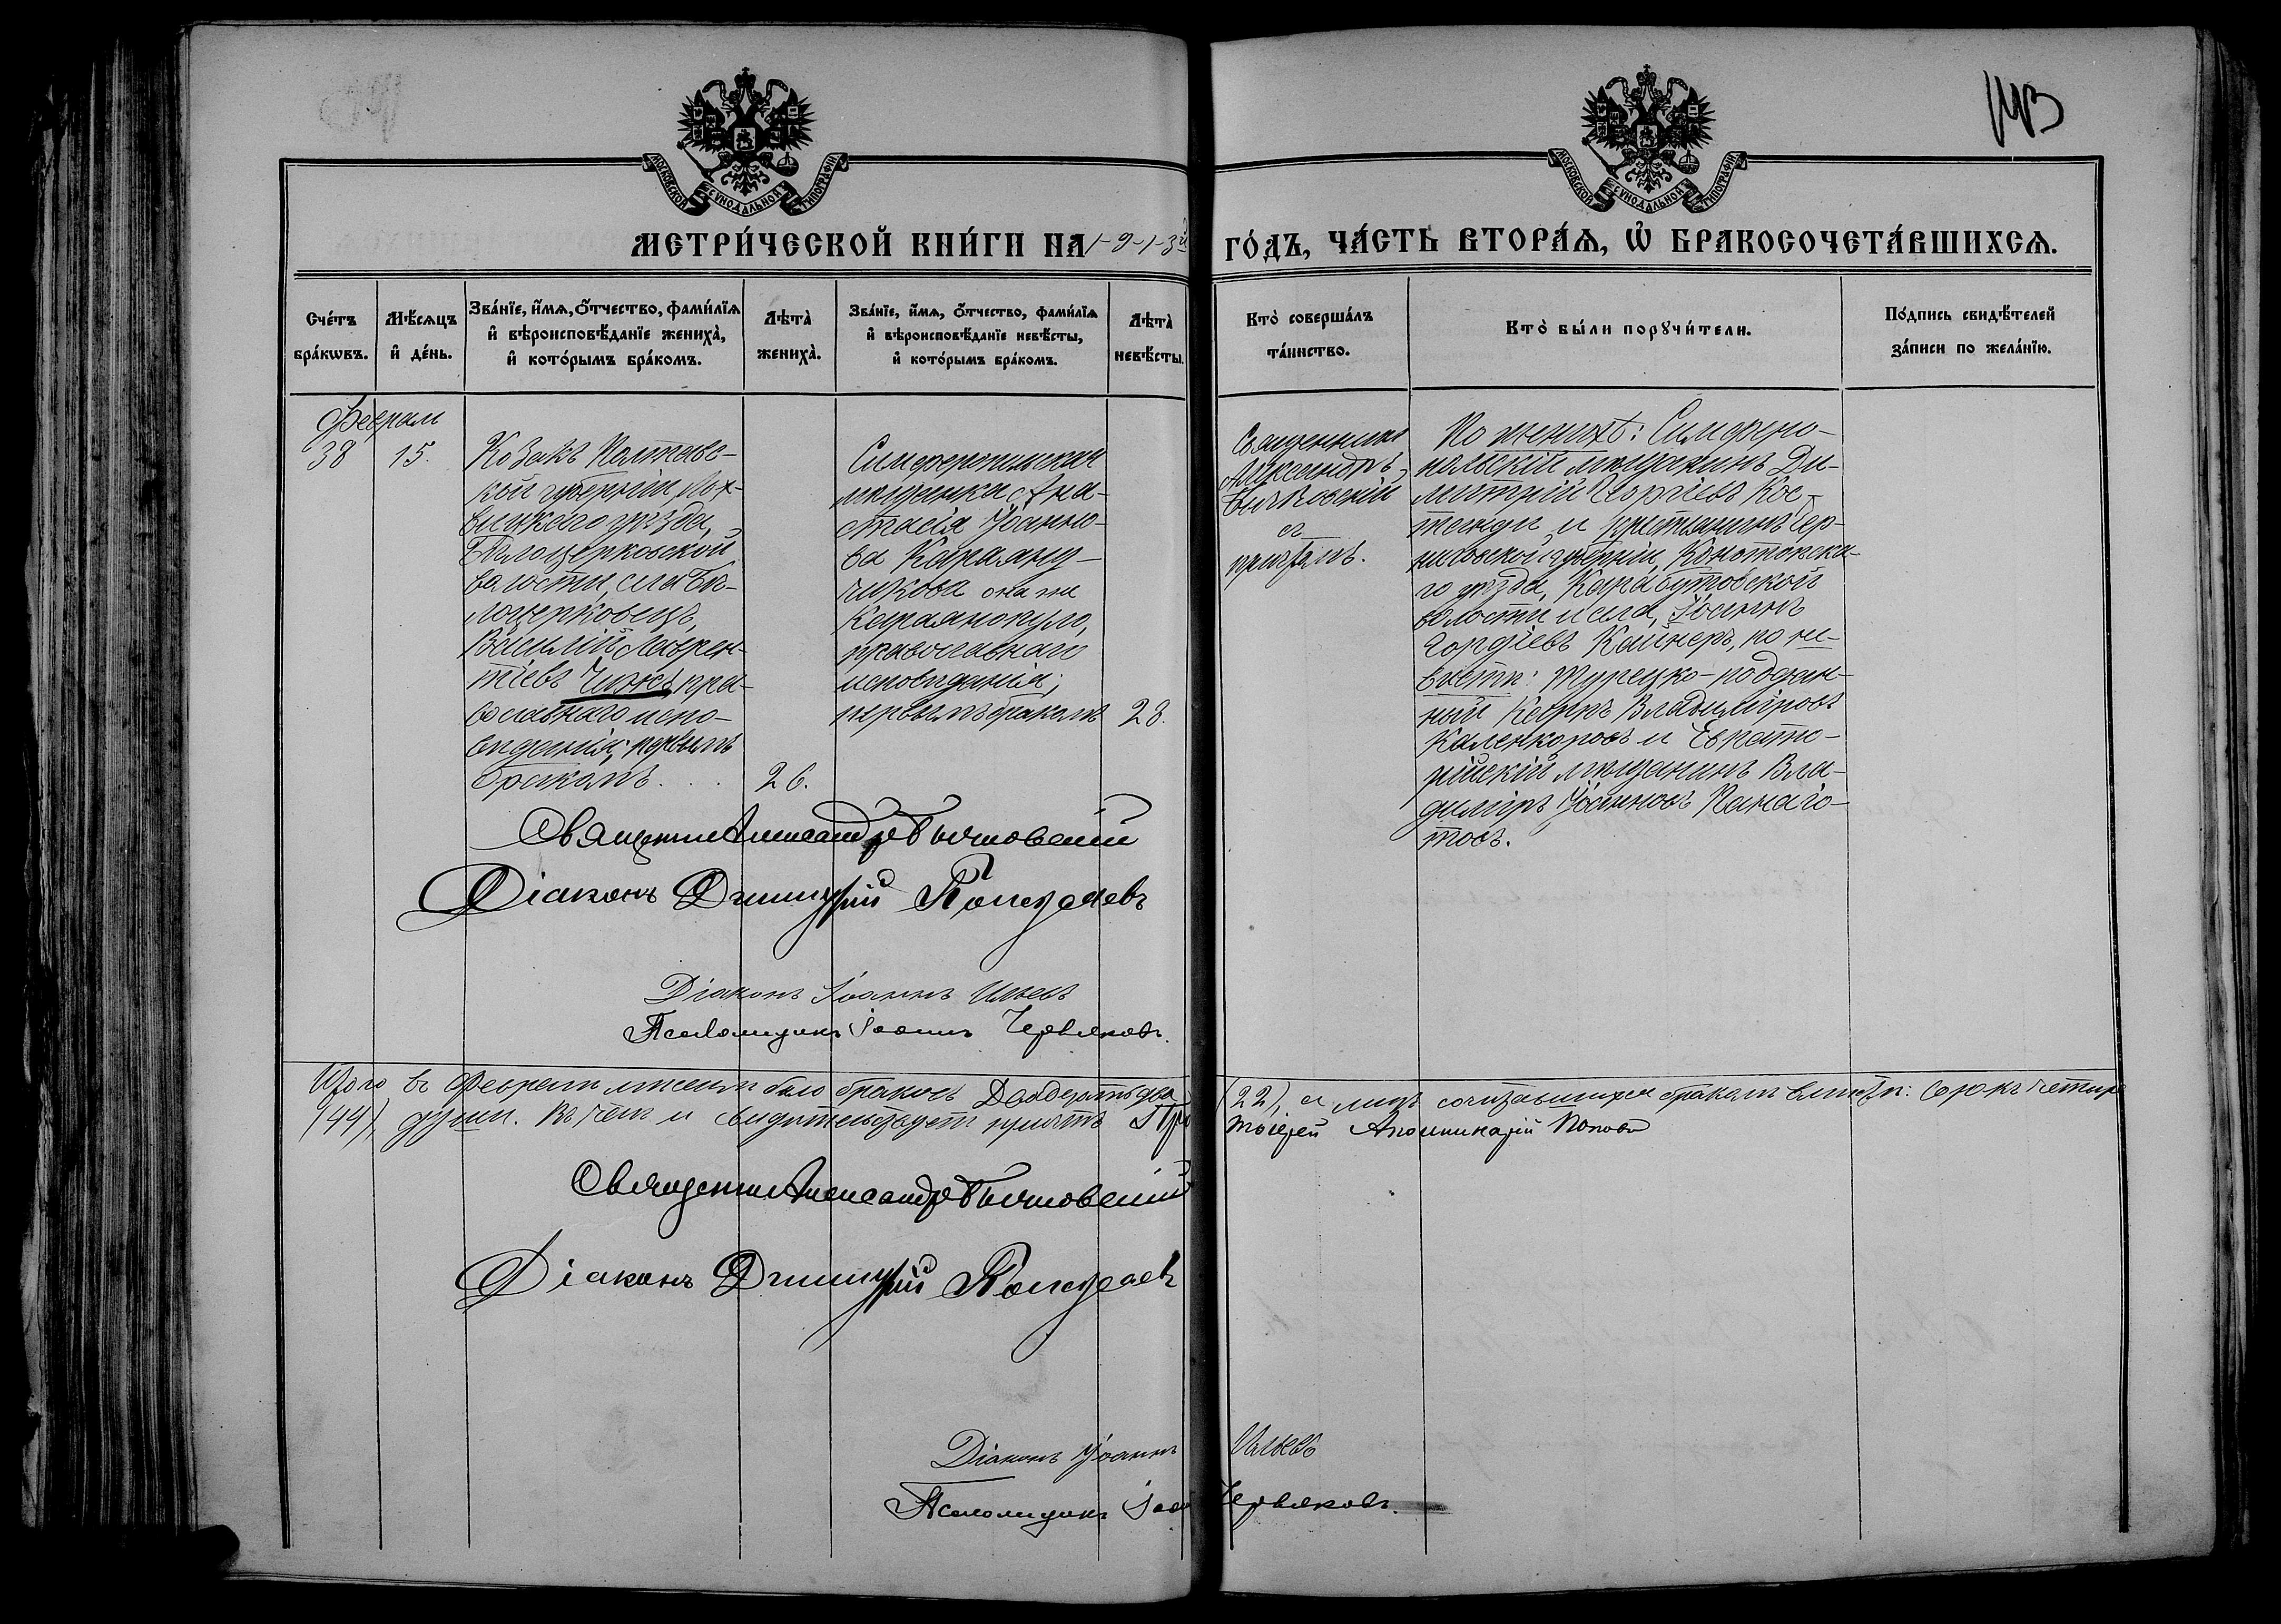 143
МОСКОВСКОЙ СѴНОДАЛЬНОЙ ТИПОГРАФІИ
МОСКОВСКОЙ СѴНОДАЛЬНОЙ ТИПОГРАФІИ
МЕТРИ́ЧЕСКОЙ КНИ́ГИ НА 1-9-1-3й ГО́ДЪ, ЧА́СТЬ ВТОРА́Ѧ, Ѽ БРАКОСОЧЕТА́ВШИХСѦ.
Сче́тъ бра́кѡвъ.
Мѣ́сѧцъ и҆ де́нь.
Зва́нїе, и҆́мѧ, ѻ҆́тчество, фами́лїѧ
и҆ вѣроисповѣ́данїе жениха̀,
и҆ кото́рымъ бра́комъ.
Лѣта̀ жениха̀.
Зва́нїе, и҆́мѧ, ѻ҆́тчество, фами́лїѧ
и҆ вѣроисповѣ́данїе невѣ́сты,
и҆ кото́рымъ бра́комъ.
Лѣта̀ невѣ́сты.
Кто̀ соверша́лъ
та́инство.
Кто̀ бы́ли порꙋчи́тели.
По́дпись свидѣ́телей
за́писи по жела́нїю.
Февраля
38
15.
Козакъ Полтавс-
кой губерніи Лох-
вицкаго уѣзда,
Бѣлоцерковской
волости, села Бѣ-
лоцерковецъ,
Василій Лаврен-
тіевъ Чижъ, пра-
вославнаго испо-
вѣданія; первымъ
бракомъ. . .
26.
Симферопольская
мѣщанка Ана-
стасія Іоанно-
ва Караянд-
чикова она же
Караянопуло,
православнаго
исповѣданія;
первымъ бракомъ
28.
Священникъ
Александръ
Бычковскій
съ
причтомъ.
По женихѣ: Симферо-
польскій мѣщанинъ Ди-
митрій Георгіевъ Кос-
тенди и крестьянинъ Чер-
ниговской губерніи, Конотопска-
го уѣзда, Карабутовской
волости и села, Іоаннъ
Гордіевъ Кайнеръ, по не-
вѣстѣ: Турецко-поддан-
ный Кесарь Владиміровъ
Каленкоровъ и Евпато-
рійскій мѣщанинъ Вла-
диміръ Іоанновъ Панаго-
товъ.
Священникъ Александръ Бычковскій
Діаконъ Димитрій
Діаконъ Іоаннъ Ильевъ
Псаломщикъ Іоаннъ Червяковъ.
Итого въ Февралѣ мѣсяцѣ было браковъ Двадцать два (22), а лицъ сочетавшихся бракомъ вмѣстѣ: сорокъ четыре
(44) души. Въ чемъ и свидѣтельствуетъ причтъ Протоіерей Аполлинарій Поповъ
Священникъ Александръ Бычковскій
Діаконъ Димитрій
Діаконъ Іоаннъ Ильевъ
Псаломщикъ Іоаннъ Червяковъ.